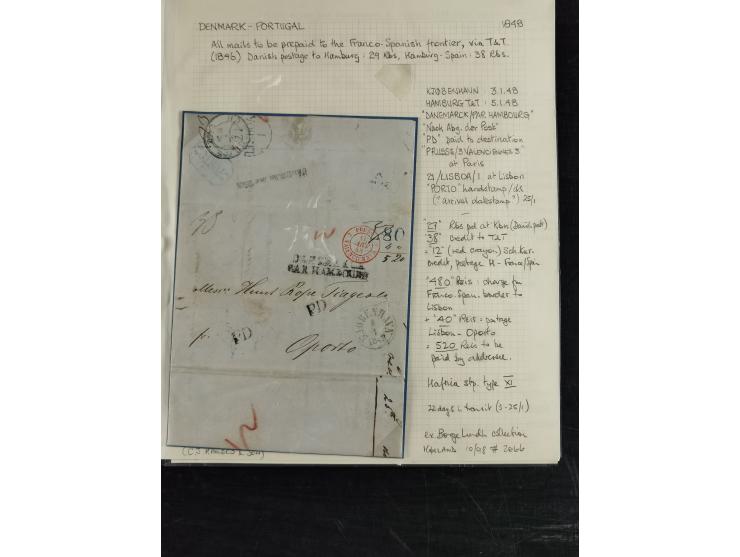 DENMARK - PORTUGAL 1848
All mails to be prepaid to the Franco-Spanish frontier, via T&T.
(1846) Danish postage to Hamburg : 29 Rbs, Hamburg - Spain : 38 Rbs.
KJØBENHAVN 3.1.48
HAMBURG T&T : 5.1.48
"DANEMARCK/PAR HAMBOURG"
"Nach Abg. der Post"
"PD" paid to destination
"PRUSSE/3 VALENCIENNES 3"
at Paris
21/LISBOA/1 at Lisbon
"PORTO" handstamp/ds
("arrival datestamp") 25/1
"29" Rbs pd at Kbhn (Danish post)
"38" credit to T&T
= "12" (red crayon) Sch. Kur.
credit, postage H - France/Spain
"480" Reis : charge fm
Franco. Span. border to
Lisbon
+ "40" Reis : postage
Lisbon - Oporto
= 520 Reis to be
paid by addressee.
Hafnia stp. type XI
22 days in transit (3-25/1)
ex. Børge Lundh collection
10/98 # 2066
480
40
520
DANEMARCK
PAR HAMBOURG
Messrs Hunt Roope Teage & Co
PD
PD
KIOBENHAVN
p.
Oporto